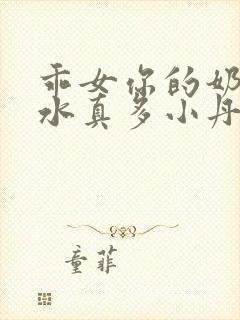 乖女你的奶
水真多小丹
童菲